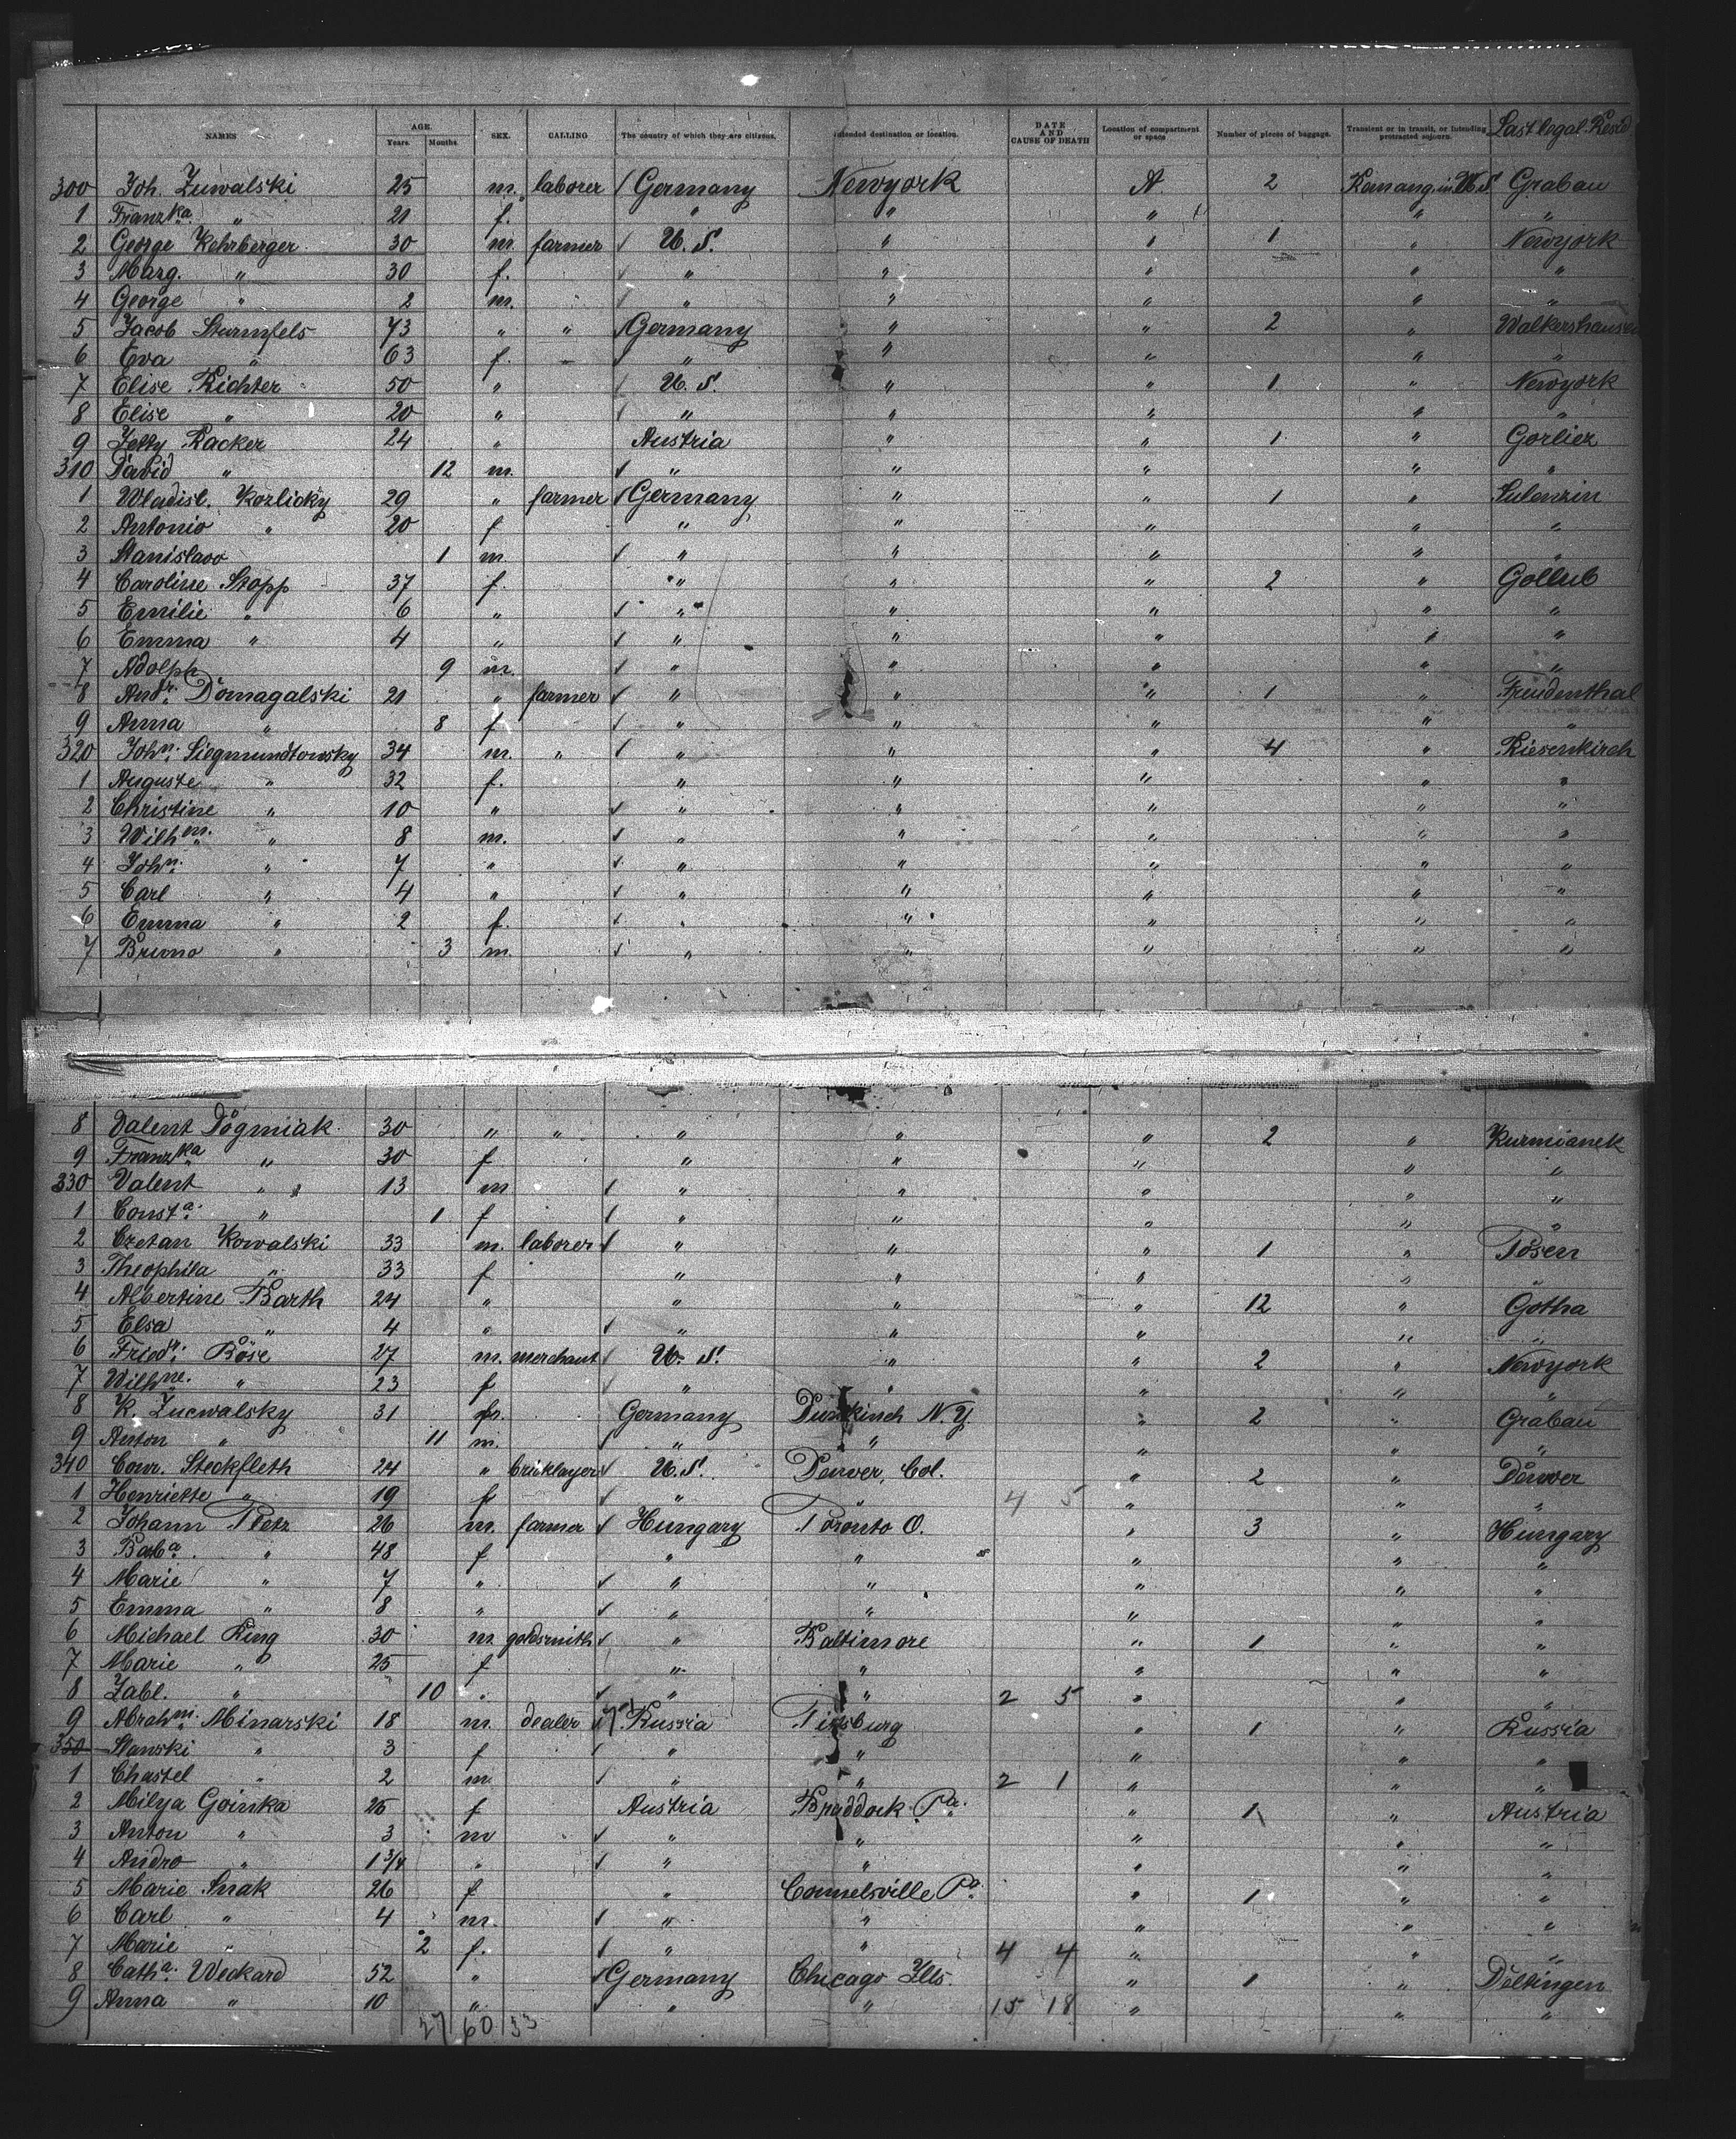 NAMES AGE. Years. Months. SEX. CALLING The country of which they are citizens. Intended destination or location. DATE AND CAUSE OF DEATH Location of compartment or space Number of pieces of baggage. Transient or in transit, or intending protracted sojourn. Last legal Resid
300 Joh. Zuwalski 25 m. laborer Germany Newyork A 2 Remang. in U.S. Grabau
1 Franzka " 21 f. " " " " "
2 George Kehrberger 30 m. farmer U. S. " " 1 " Newyork
3 Marg. " 30 f. " " " " "
4 George " 2 m. " " " " "
5 Jacob Sturmfels 73 " " Germany " " 2 " Walkershausen
6 Eva " 63 f. " " " " "
7 Elise Richter 50 " U. S. " " 1 " Newyork
8 Elise " 20 " " " " " "
9 Jetty Racker 24 " Austria " " 1 " Gorlicz
310 David " 12 m. " " " " "
1 Wladisl. Kozlicky 29 " farmer Germany " " 1 " Sulenzin
2 Antonio " 20 f " " " " "
3 Stanislavo 1 m " " " " "
4 Caroline Stopp 37 f. " " " 2 " Gollub
5 Emilie " 6 " " " " " "
6 Emma " 4 " " " " " "
7 Adolph 9 m. " " " " "
8 Andr. Domagalski 21 " farmer " " " 1 " Freudenthal
9 Anna " 8 f " " " " "
320 John. Siegmundtowsky 34 m. " " " " 4 " Riesenkirch
1 Auguste " 32 f. " " " " "
2 Christine " 10 " " " " " "
3 Wilhm. " 8 m. " " " " "
4 John. " 7 " " " " " "
5 Carl " 4 " " " " " "
6 Emma " 2 f. " " " " "
7 Bruno " 3 m. " " " " "
8 Valent Dogmiak 30 " " " " " 2 " Kurmianek
9 Franzka " 30 f " " " " "
330 Valent " 13 m " " " " "
1 Consta. " 1 f " " " " "
2 Czetan Kowalski 33 m. laborer " " " 1 " Posen
3 Theophila " 33 f " " " " "
4 Albertine Barth 24 " " " " 12 " Gotha
5 Elsa " 4 " " " " " "
6 Friedr. Böse 27 m. merchant U. S. " " 2 " Newyork
7 Wilhne. " 23 f " " " " "
8 K. Zucwalsky 31 Germany Dunkirch N.Y. " 2 " Grabau
9 Anton " 11 m. " " " " "
340 Conr. Steckfleth 24 " bricklayer U.S. Denver, Col. " 2 " Denver
1 Henriette " 19 f " " 4 5 " " "
2 Johann Pletz 26 m. farmer Hungary Toronto O. " 3 " Hungary
3 Barba. " 48 f " " " " "
4 Marie " 7 " " " " " "
5 Emma " 8 " " " " " "
6 Michael Ring 30 m goldsmith " Baltimore " 1 " "
7 Marie " 25 f " " " " "
8 Zabl. " 10 " " " 2 5 " " "
9 Abrahm. Minarski 18 m. dealer Russia Pitsburg " 1 " Russia
350 Slawski " 3 f " " " " "
1 Chastel " 2 m. " " 2 1 " " "
2 Milya Goinka 25 f Austria Braddock Pa. " 1 " Austria
3 Anton " 3 m " " " " "
4 Andro " 1 3/4 " " " " " "
5 Marie Snak 26 f " Connelsville Pa. " 1 " "
6 Carl " 4 m. " " " " "
7 Marie " 2 f. " " 4 4 " " "
8 Catha. Weckard 52 " Germany Chicago Ills. " 1 " Döltingen
9 Anna " 10 " " " 15 18 " " "
27 60 33